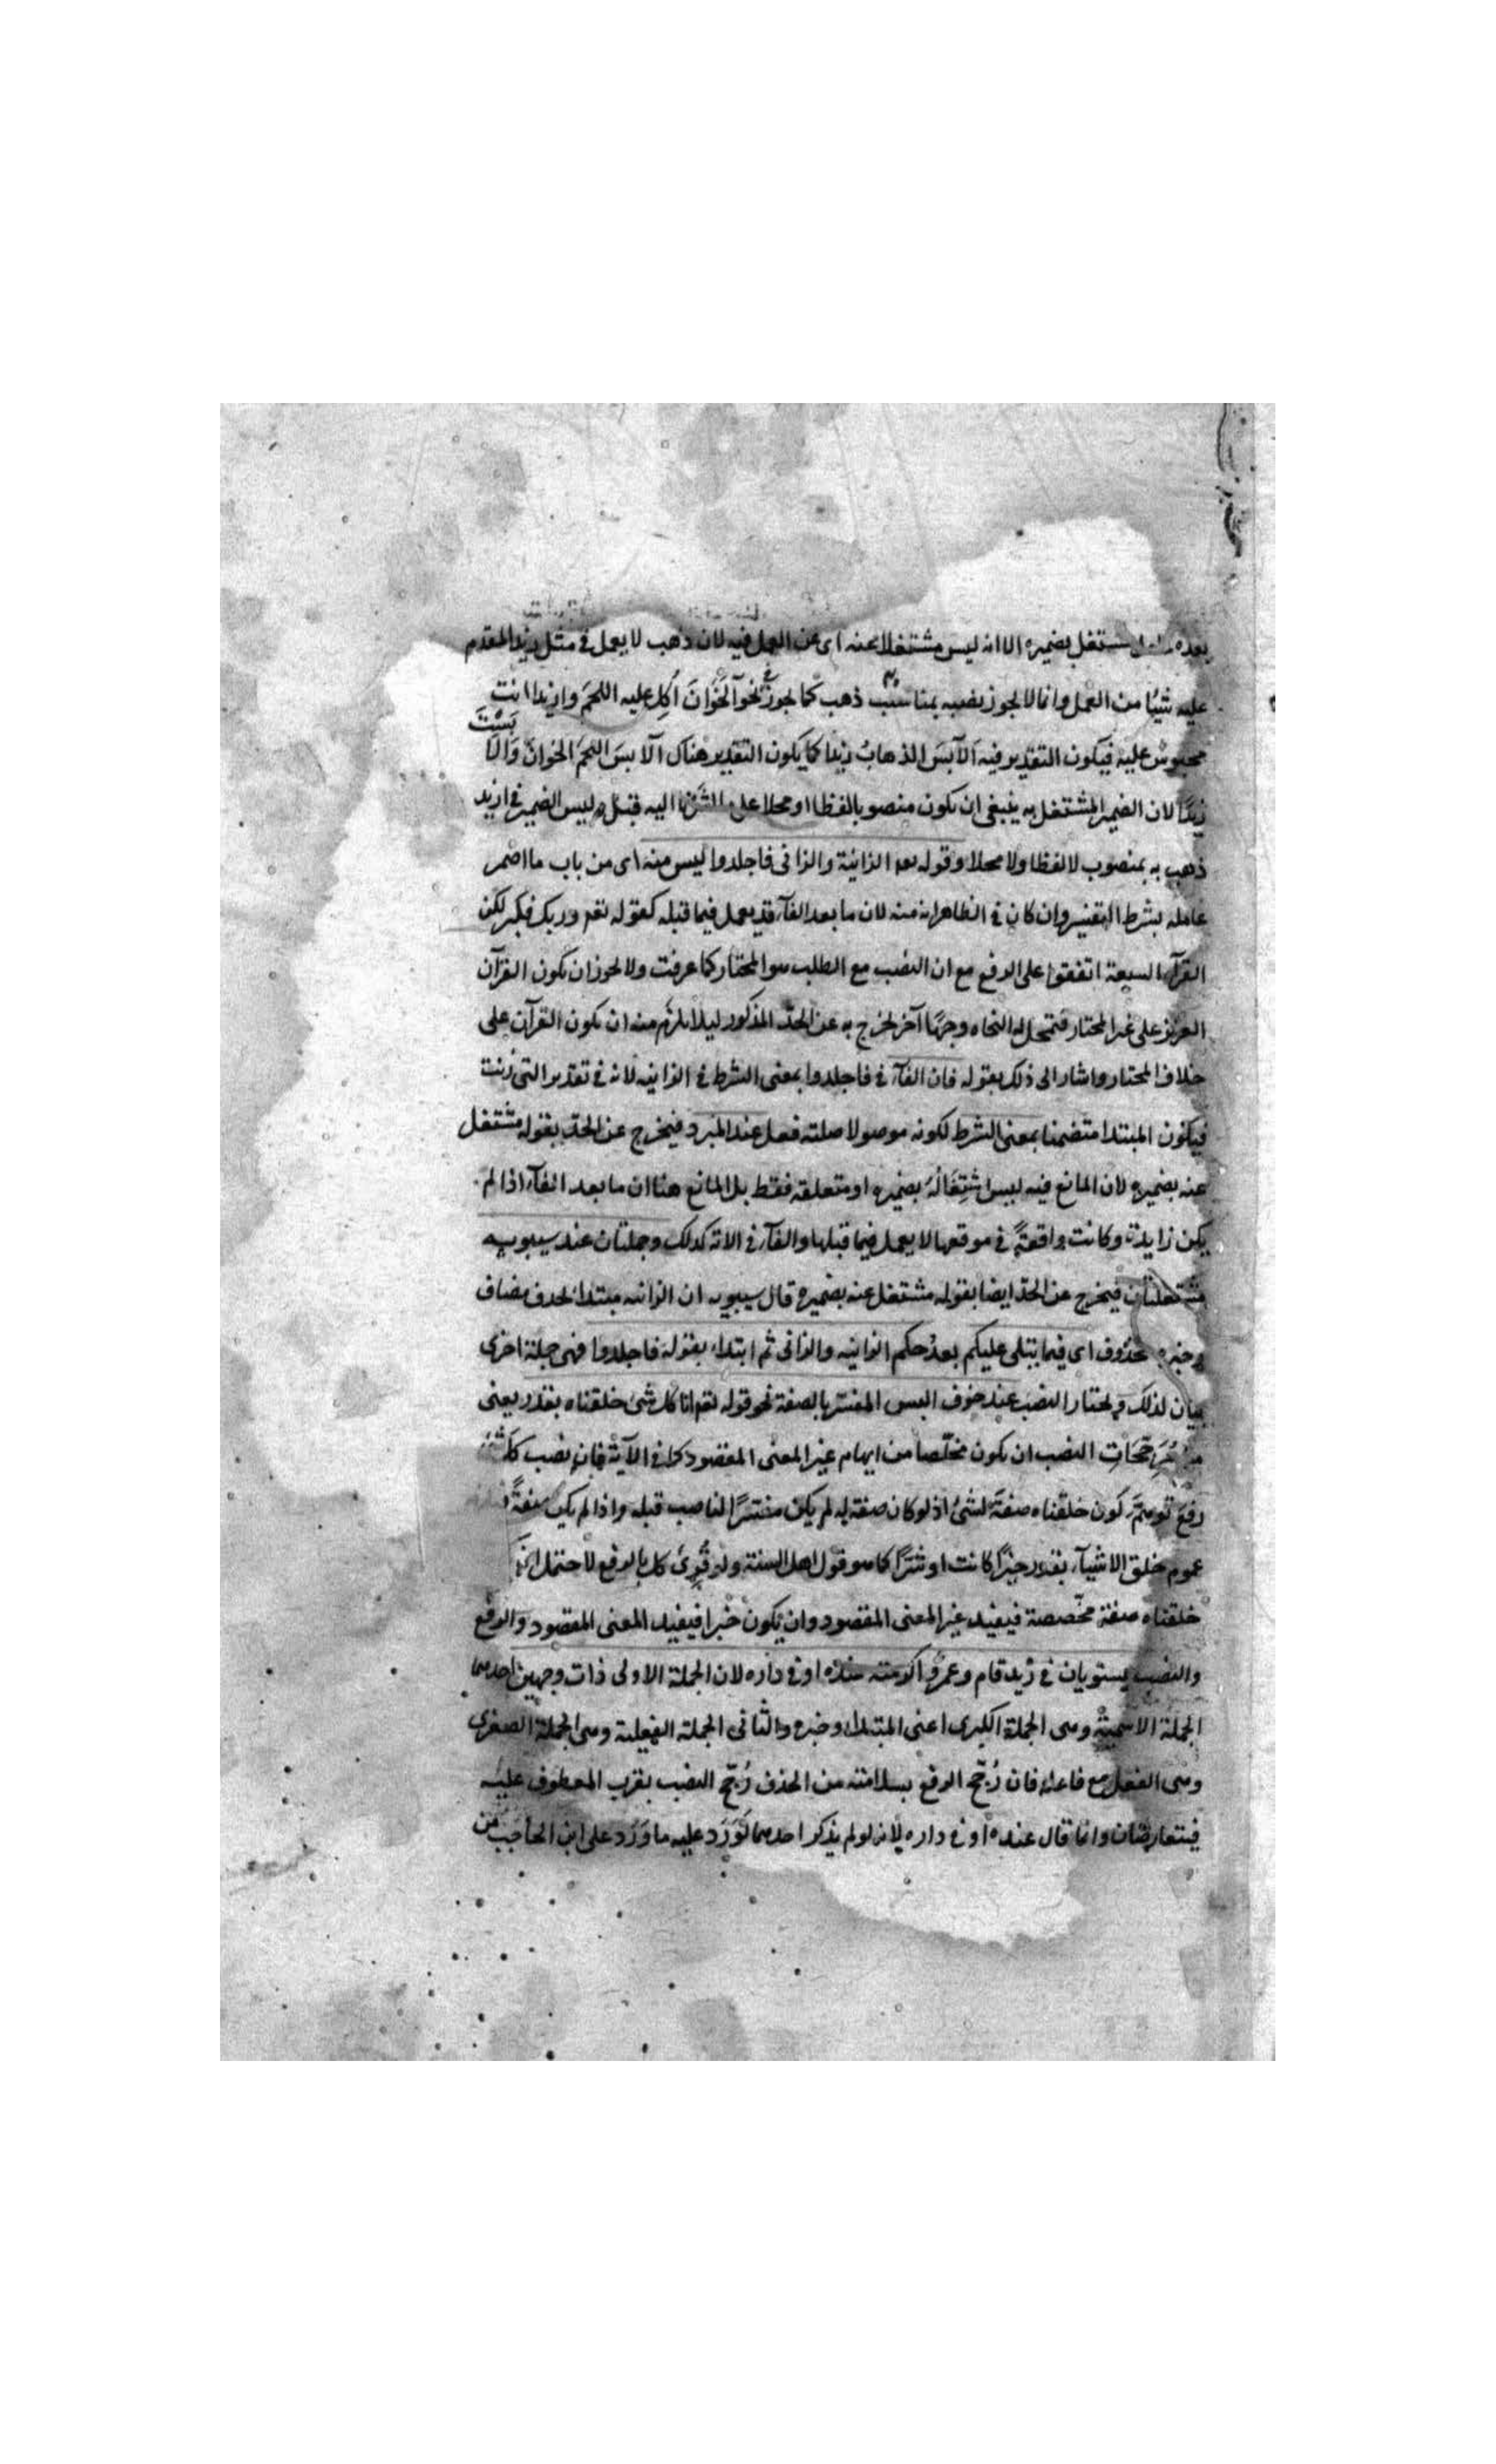 بعده مشتغل بضميره الا انه ليس مشتغلا عنه اى عن العمل فيه لان ذهب لا يعمل فى مثل زيد المقدم
عليه شيئا من العمل وانما لا يجوز نصبه بمناسب ذهب كما يجوز فى نحو آلخوان أكل عليه اللحم وازيدا انت
محبوس عليه فيكون التقدير فيه ألابس الذهاب زيدا كما يكون التقدير هناك آلابس اللحم الخوان وألابست
زيدا لان الضمير المشتغل به ينبغى ان يكون منصوبا لفظا او محلا على اليه قبل وليس الضمير فى ازيد
ذهب به بمنصوب لا لفظا ولا محلا وقوله تعه الزانية والزانى فاجلدوا ليس منه اى من باب ما اضمر
عامله بشرط التفسير وان كان فى الظاهر انه منه لان ما بعد الفآء قد يعمل فيما قبله كقوله تعم وربك فكبر لكن
القرآء السبعة اتفقوا على الرفع مع ان النصب مع الطلب هو المختار كما عرفت ولا يجوز ان يكون القرآن
العزيز على غير المختار فتمحل له النحاه وجها آخر يخرج به عن الحد المذكور ليلا يلزم منه ان يكون القرآن على
خلاف المختار واشار الى ذلك بقوله فان الفآء فى فاجلدوا بمعنى الشرط فى الزانيه لانه فى تقدير التى زنت
فيكون المبتدا متضمنا بمعنى الشرط لكونه موصولا صلته فعل عند المبرد فيخرج عن الحد بقوله مشتغل
عنه بضميره لان المانع فيه ليس اشتغاله بضميره او متعلقه فقط بل المانع هنا ان ما بعد الفآء اذا لم
يكن زايدة وكانت واقعة فى موقعها لا يعمل فيما قبلها والفآء فى الاية كذلك وجملتان عند سيبويه
مستقلتان فيخرج عن الحد ايضا بقوله مشتغل عنه بضميره قال سيبويه ان الزانيه مبتدا بحذف مضاف
وخبره محذوف اى فيما يتلى عليكم بعد حكم الزانيه والزانى ثم ابتداء بقوله فاجلدوا فهى جملة اخرى
بيان لذلك ويختار النصب عند خوف اللبس المفسر بالصفة نحو قوله تعم انا كل شئ خلقناه بقدر يعنى
من مرجحات النصب ان يكون مخلصا من ايهام غير المعنى المقصود كما فى الآية فان نصب كل شئ
رفع توهم كون خلقناه صفة لشئ اذ لو كان صفة له لم يكن مفسرا لناصب قبله واذا لم يكن صفة
عموم خلق الاشيآء بقدر خيرا كانت او شرا كما هو قول اهل السنة ولو قرئ كل بالرفع لاحتمل ان
خلقناه صفة مخصصة فيفيد غير المعنى المقصود وان يكون خبرا فيفيد المعنى المقصود والرفع
والنصب يستويان فى زيد قام وعمرو اكرمته عنده او فى داره لان الجملة الاولى ذات وجهين احدهما
الجملة الاسمية وهى الجملة الكبرى اعنى المبتدا وخبره والثانى الجملة الفعلية وهى الجملة الصغرى
وهى الفعل مع فاعله فان رجح الرفع بسلامته من الحذف رجح النصب بقرب المعطوف عليه
فيتعارضان وانما قال عنده او فى داره لانه لو لم يذكر احدهما لورد عليه ما ورد على ابن الحاجب من